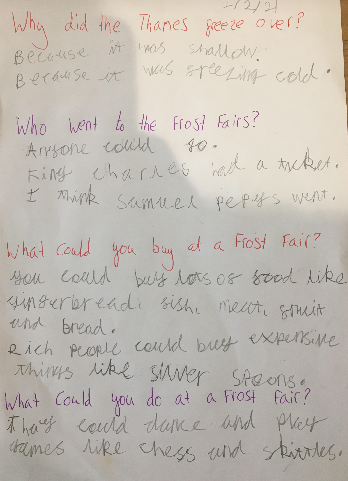 Why did the Thames freeze over?
Because it was shallow.
Because it was freezing cold.
Who went to the Frost Fairs?
Anyone could go.
King charles had a ticket.
I think Samuel pepys went.
What could you buy at a Frost Fair?
you could buy lots of food like
gingerbread, fish, meat, fruit
and bread.
Rich people could buy expensive
things like silver spoons.
What could you do at a Frost Fair?
They could dance and play
games like chess and skittles.